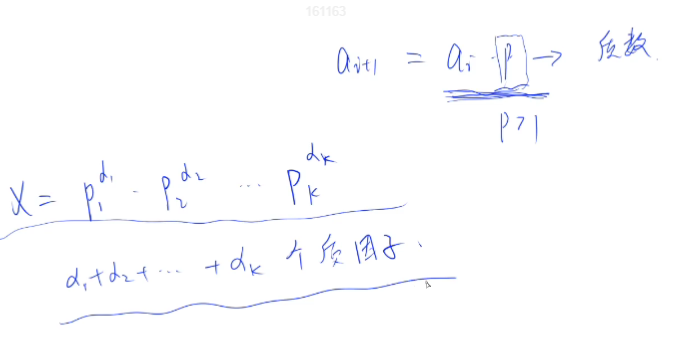 161163
a_{i+1} = a_i · p → 质数
p > 1
X = p_1^{α_1} · p_2^{α_2} ... p_k^{α_k}
α_1+α_2+ ... +α_k 个质因子.